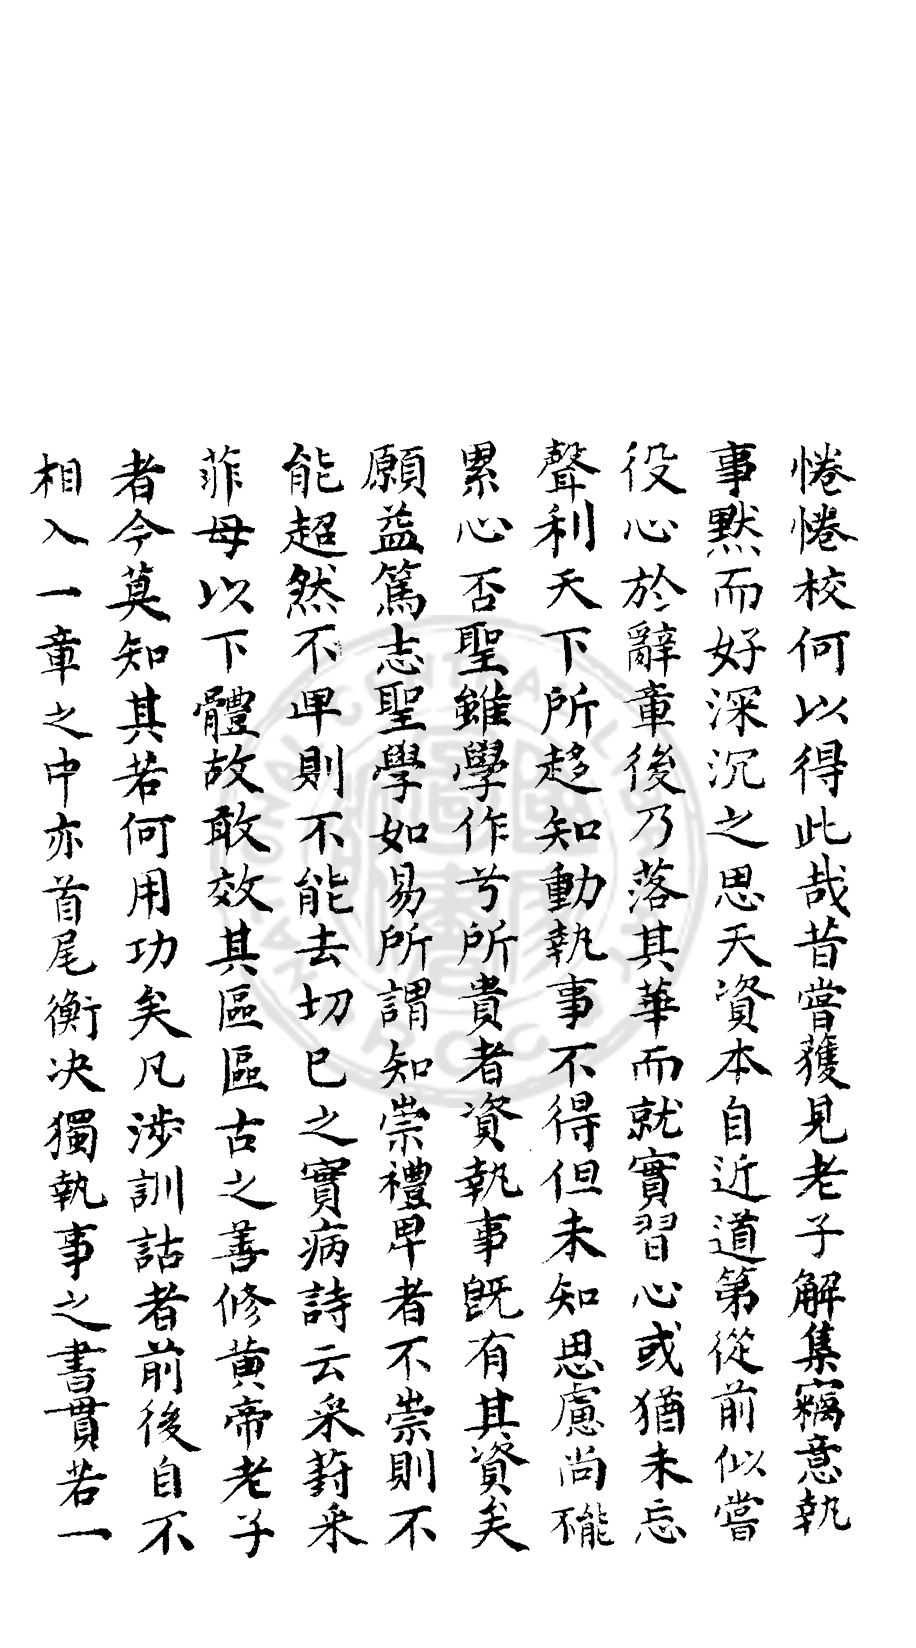 惓惓校何以得此哉昔嘗獲見老子解集竊意執
事默而好深沉之思天資本自近道第從前似嘗
役心於辭章後乃落其華而就實習心或猶未忘
聲利天下所趍知動執事不得但未知思慮尚能
累心否聖雖學作兮所貴者資執事既有其資矣
願益篤志聖學如易所謂知崇禮卑者不崇則不
能超然不卑則不能去切已之實病詩云采葑采
菲毋以下體故敢效其區區古之善修黄帝老子
者今莫知其若何用功矣凡涉訓詁者前後自不
相入一章之中亦首尾衡决獨執事之書貫若一